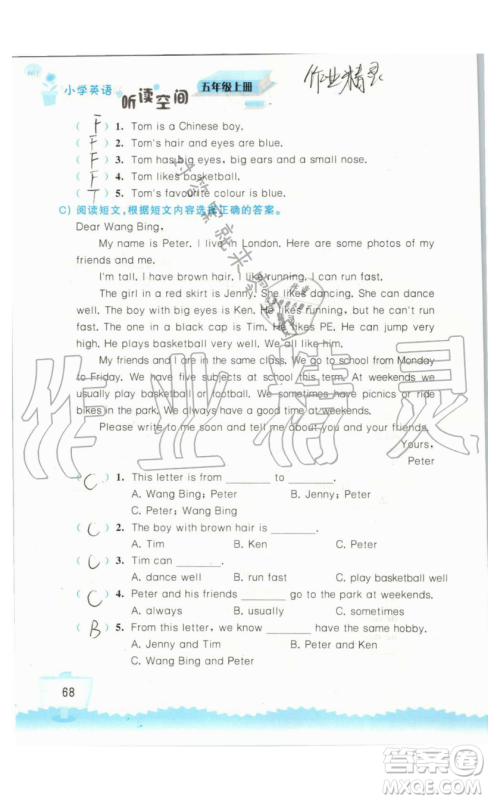 小学英语
听读空间
五年级上册
作业精灵
( F ) 1. Tom is a Chinese boy.
( F ) 2. Tom's hair and eyes are blue.
( F ) 3. Tom has big eyes, big ears and a small nose.
( F ) 4. Tom likes basketball.
( T ) 5. Tom's favourite colour is blue.
C) 阅读短文,根据短文内容选择正确的答案。
Dear Wang Bing,
My name is Peter. I live in London. Here are some photos of
my friends and me.
I'm tall, I have brown hair. I like running. I can run fast.
The girl in a red skirt is Jenny. She likes dancing. She can dance
well. The boy with big eyes is Ken. He likes running, but he can't run
fast. The one in a black cap is Tim. He likes PE. He can play
basketball very well. We all like him.
My friends and I are in the same class. We go to school from Monday
to Friday. We have five subjects at school every day. At weekends we
usually play basketball or football. We sometimes have picnics or ride
bikes in the park. We always have a good time at weekends.
Please write to me soon and tell me about you and your friends.
Yours,
Peter
( C ) 1. This letter is from ______ to ______.
A. Wang Bing; Peter B. Jenny; Peter
C. Peter; Wang Bing
( C ) 2. The boy with brown hair is ______.
A. Tim B. Ken C. Peter
( C ) 3. Tim can ______.
A. dance well B. run fast C. play basketball well
( C ) 4. Peter and his friends ______ go to the park at weekends.
A. always B. usually C. sometimes
( B ) 5. From this letter, we know ______ have the same hobby.
A. Jenny and Tim B. Peter and Ken
C. Wang Bing and Peter
68
对答案就来
作业精灵
答案圈
MXQE.COM